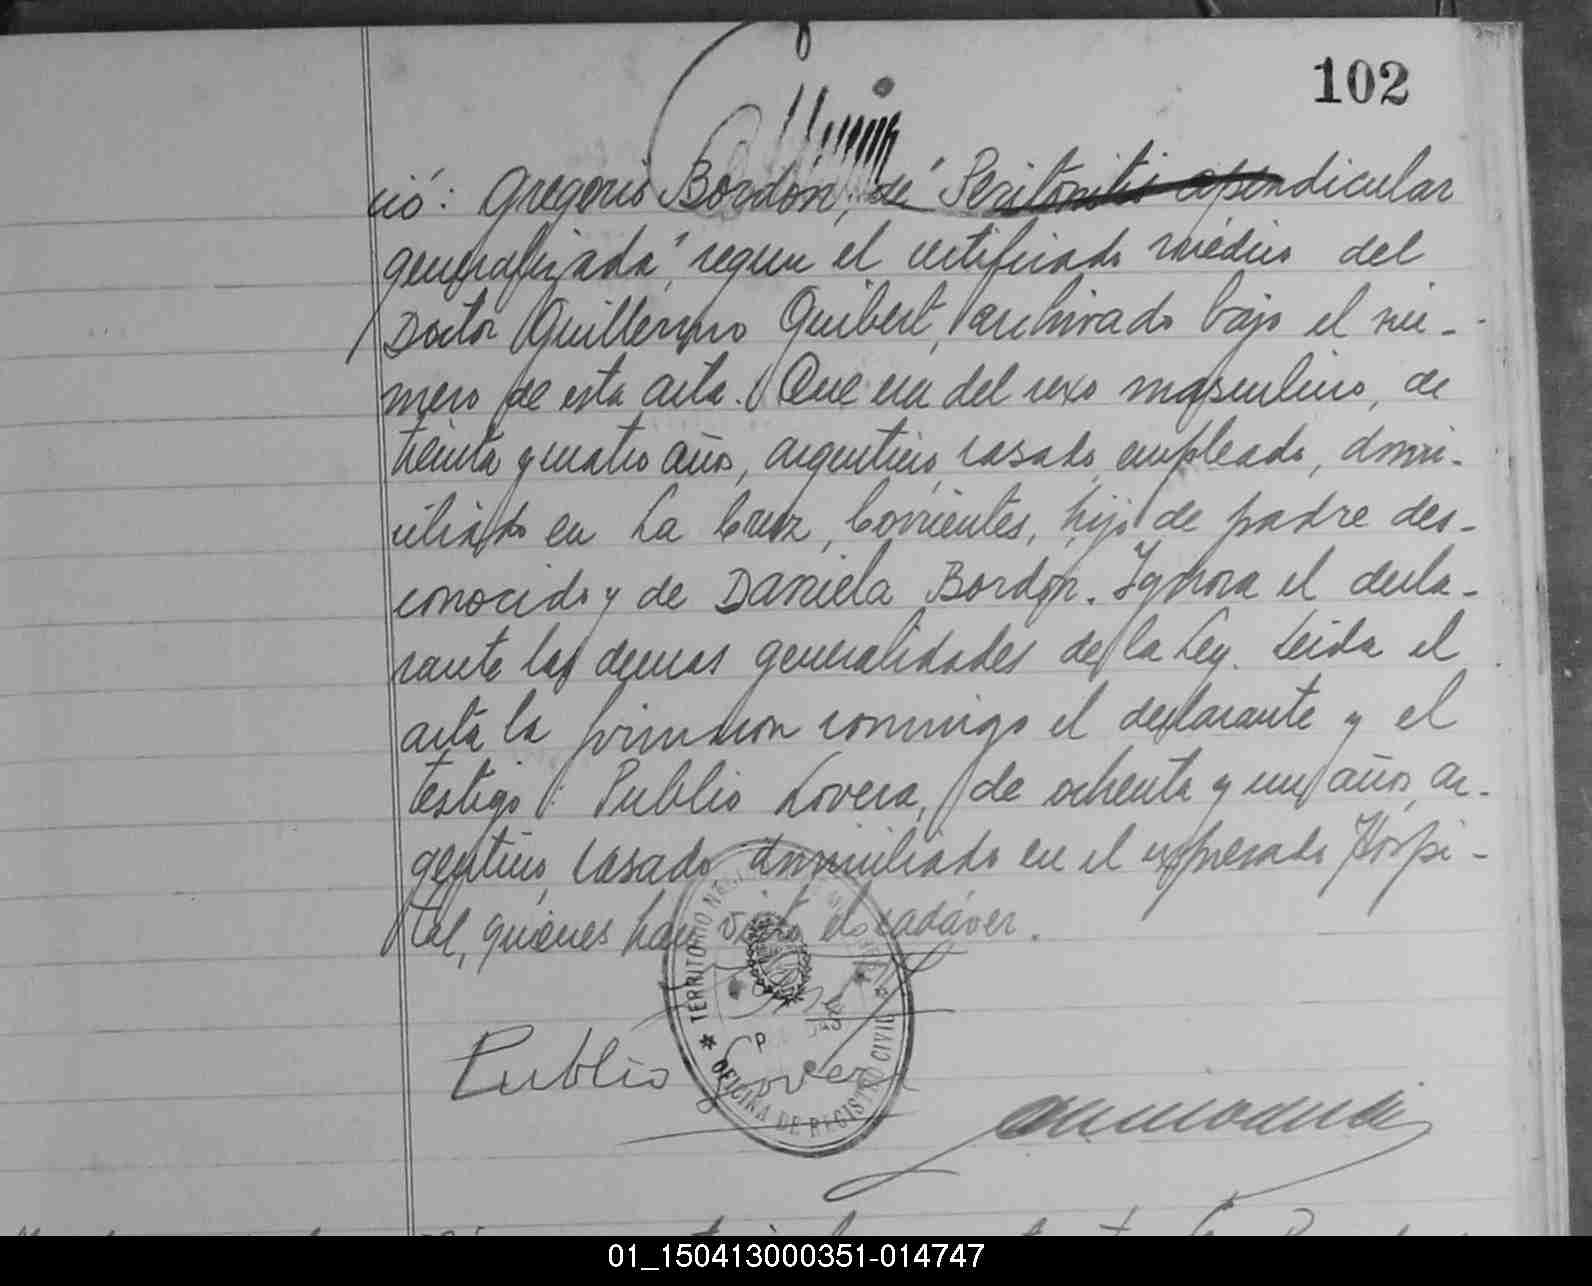 102
ció: Gregorio Bordón, de "Peritonitis apendicular
generalizada", según el certificado médico del
Doctor Guillermo Quibert, archivado bajo el nú-
mero de esta acta. Que era del sexo masculino, de
treinta y cuatro años, argentino, casado, empleado, domi-
ciliado en La Cruz, Corrientes, hijo de padre des-
conocido y de Daniela Bordón. Ignora el decla-
rante las demas generalidades de la Ley. Leida el
acta la firmaron conmigo el declarante y el
testigo: Publio Lovera, de ochenta y un años, ar-
gentino, casado, domiciliado en el expresado Hospi-
tal, quienes han visto el cadáver.
Publio Lovera
TERRITORIO
OFICINA DE REGISTRO CIVIL
01_150413000351-014747